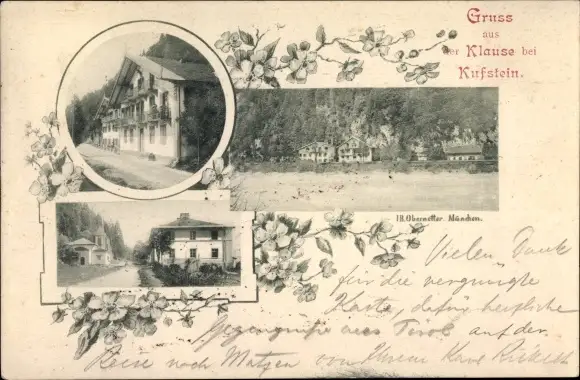 Gruss
aus
der Klause bei
Kufstein.
J.B. Obernetter. München.
Vielen Dank
für die vergnügte
Karte, dafür herzliche
Gegengrüsse aus Tirol auf der
Reise nach Matzen von Ihrem Karl